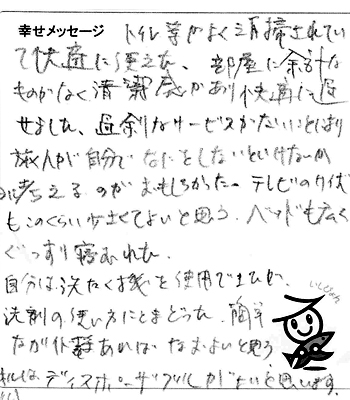 幸せメッセージ
トイレ等がよく清掃されてい
て快適に使えた、部屋に余計な
ものがなく清潔感があり快適に過
せました、過剰なサービスがないことにより
旅人が自分でなにをしないといけないか
考えるのがおもしろかった。テレビのサイズ
もこのくらい小さくてよいと思う、ベッドも広く
ぐっすり寝むれた。
自分は洗たく機を使用で
洗剤の使い方にとまどった、簡単
な あればなおよいと思う
私はディスポーザブルがよいと思います。